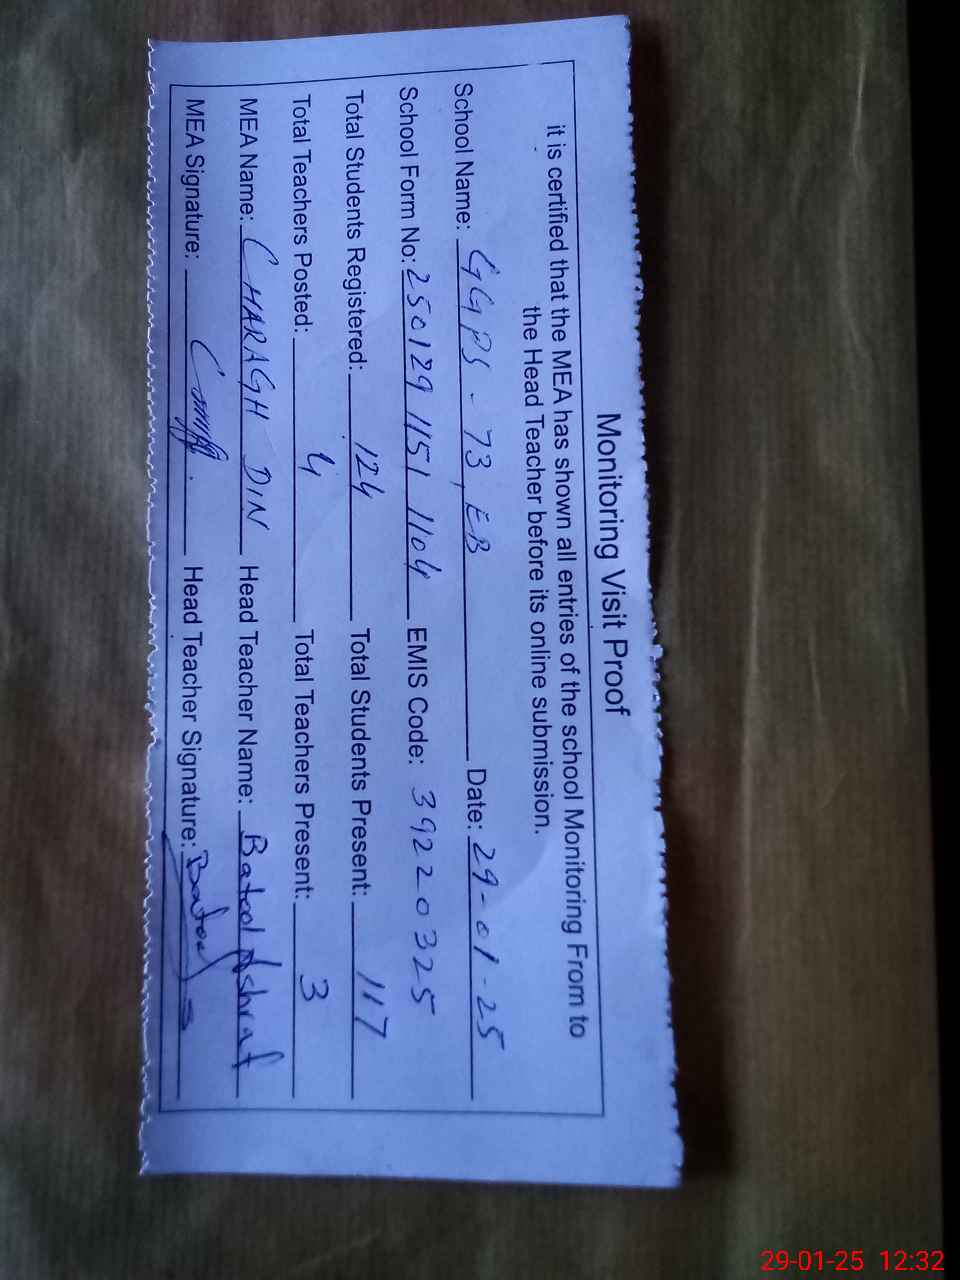 Monitoring Visit Proof
it is certified that the MEA has shown all entries of the school Monitoring From to
the Head Teacher before its online submission.
School Name: GGPS - 73, EB Date: 29-01-25
School Form No: 250129 1151 1104 EMIS Code: 39220325
Total Students Registered: 124 Total Students Present: 117
Total Teachers Posted: 4 Total Teachers Present: 3
MEA Name: CHARAGH DIN Head Teacher Name: Batool Ashraf
MEA Signature: Head Teacher Signature: Batool
29-01-25 12:32